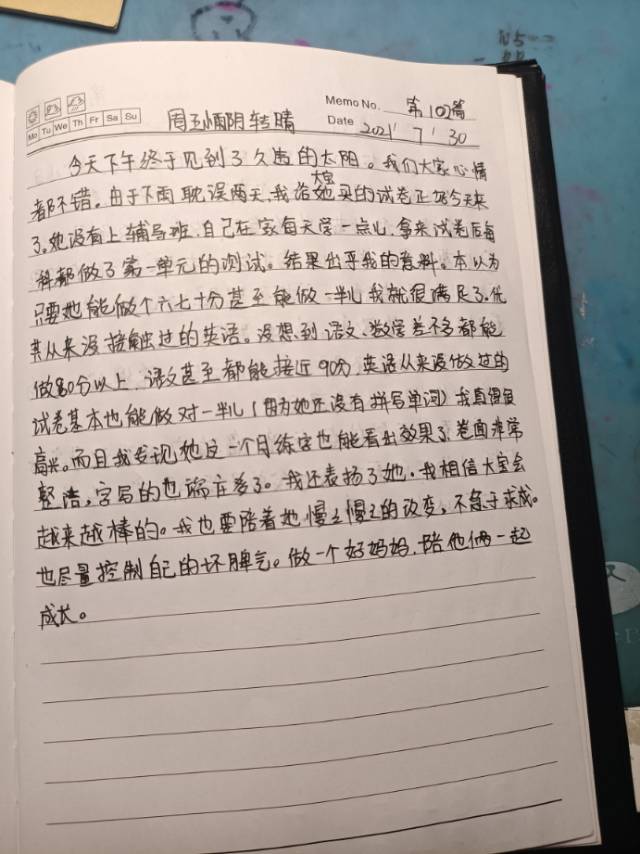 Memo No. 第102篇
Mo Tu We Th Fr Sa Su
周五小雨阴转晴
Date 2021 7 30
今天下午终于见到了久违的太阳。我们大家心情
都不错。由于下雨耽误两天,我给大宝她买的试卷正好今天来
了。她没有上辅导班,自己在家每天学一点儿,拿来试卷后每
科都做了第一单元的测试。结果出乎我的意料。本以为
只要她能做个六七十分甚至能做一半儿我就很满足了。优
其从来没接触过的英语。没想到语文、数学差不多都能
做80分以上,语文甚至都能接近90分,英语从来没做过的
试卷基本也能做对一半儿(因为她还没有拼写单词)我真得很
高兴。而且我发现她这一个月练字也能看出效果了,卷面非常
整洁,字写的也端庄多了。我还表扬了她,我相信大宝会
越来越棒的。我也要陪着她慢之慢之的改变,不急于求成。
也尽量控制自己的坏脾气。做一个好妈妈,陪他俩一起
成长。